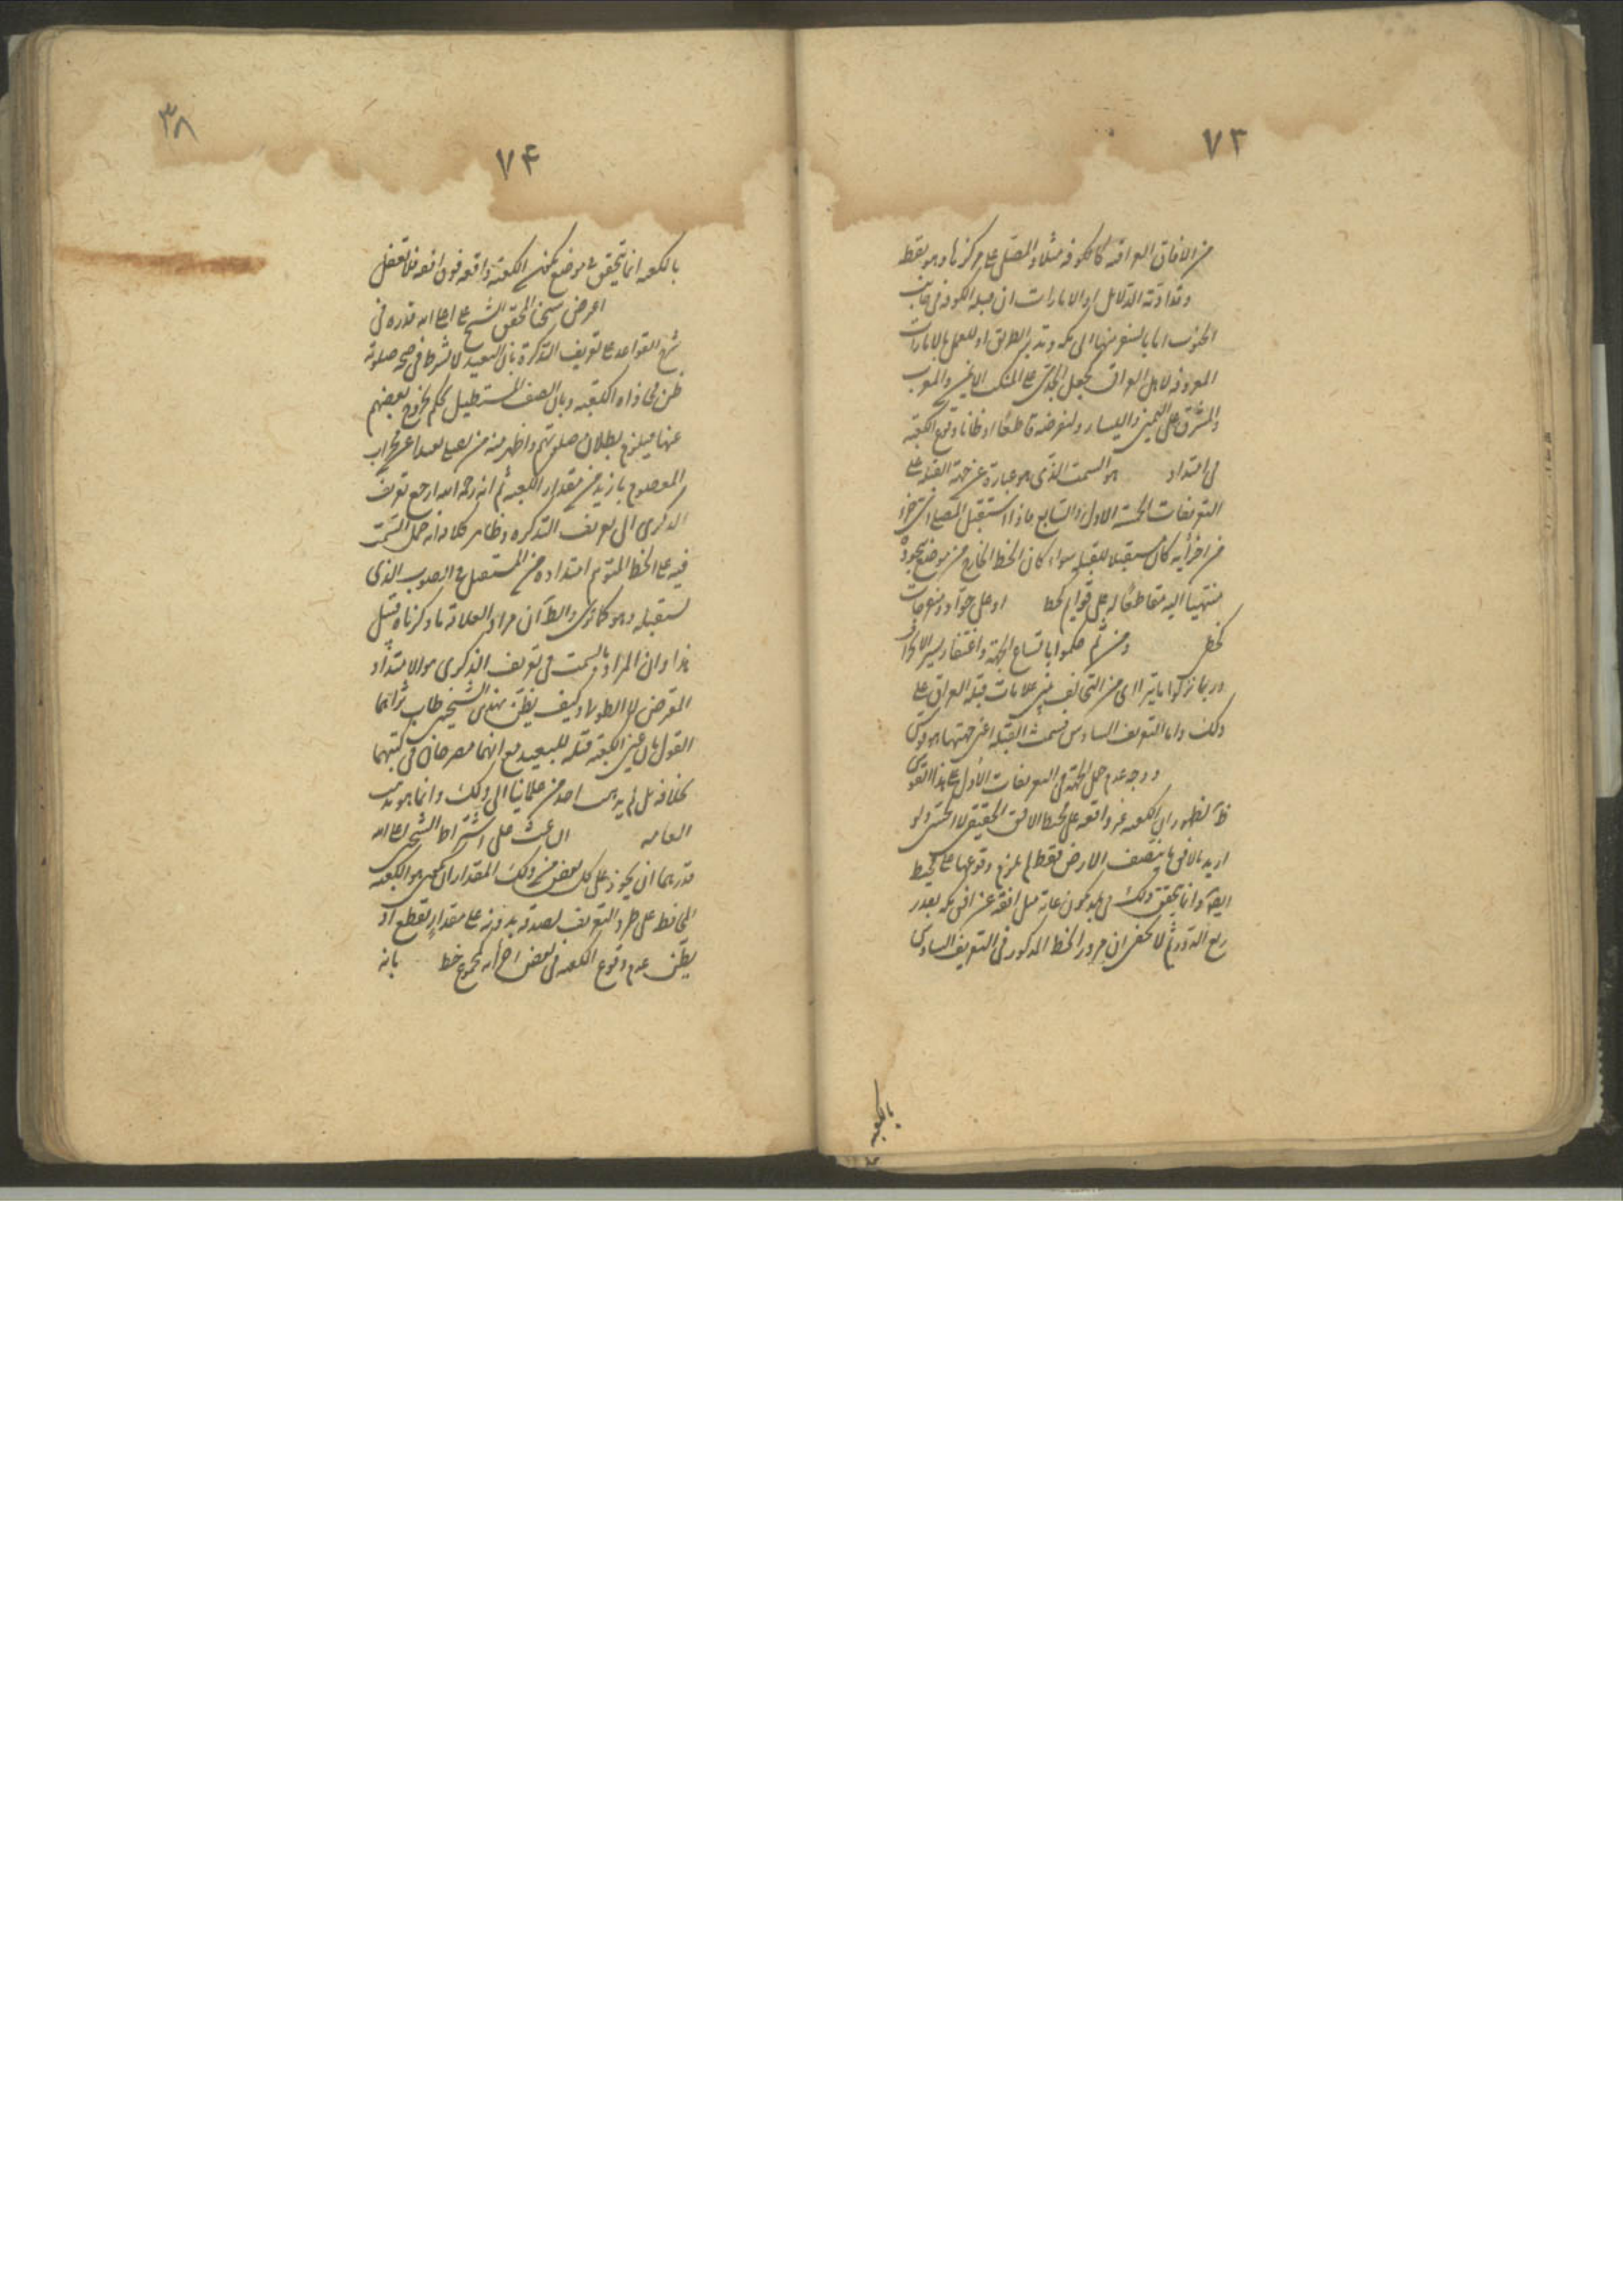 ٧٣
من الافاق العراقية كالكوفة مثلا والمصلى على مركزها وهو نقطة
وقد ادته الدلائل او الامارات ان قبلة الكوفة في جانب
الجنوب اما بالسفر منها الى مكة وتدبر الطريق او للعمل بالامارات
المعروفة لاهل العراق كجعل الجدي على المنكب الايمن والمغرب
والمشرق على اليمين واليسار ولنفرضه قاطعا او ظانا وقوع الكعبة
في امتداد هو السمت الذي هو عبارة عن جهة القبلة على
التعريفات الخمسة الاول والسابع فاذا استقبل المصلي اي جزء
من اجزائه كان مستقبلا للقبلة سواء كان الخط الخارج من موضع سجوده
منتهيا اليه مقاطعا له على قوائم كخط او على حواد ومنفرجات
كخط ومن ثم حكموا باتساع الجهة واغتفار يسير الانحراف
وربما نزلوا ما يتراءى من التخالف بين علامات قبلة العراق على
ذلك واما التعريف السادس فسمت القبلة اعني جهتها هو قوس
ووجه عدم حمل الجهة في التعريفات الاول على هذا القوس
ظ لظهور ان الكعبة غير واقعة على محيط الافق الحقيقي لا الحسي ولو
اريد بالافق ما ينصف الارض فقط لم يلزم وقوعها على محيط
ايضا وانما يتحقق ذلك في بلد يكون غاية ميل افقه عن افق مكة بقدر
ربع الدور ثم لا يخفى ان مرور الخط المذكور في التعريف السادس
بالكعبة
٣٨
٧۴
بالكعبة انما يتحقق في موضع يكون الكعبة واقعة فوق افقه فلا تغفل
اعترض شيخنا المحقق الشيخ على اعلى الله قدره في
شرح القواعد على تعريف التذكرة بان البعيد لا يشترط في صحة صلوته
ظن محاذاة الكعبة وبان الصف المستطيل يحكم بخروج بعضهم
عنها فيلزم بطلان صلوتهم واظهر منه من يصلي بعيدا عن محراب
المعصوم بازيد من مقدار الكعبة ثم انه رحمه الله ارجع تعريف
الذكرى الى تعريف التذكرة وظاهر كلامه انه حمل السمت
فيه على الخط المتوهم امتداده من المستقبل في الصوب الذي
يستقبله وهو كما ترى والظ ان مراد العلامة ما ذكرناه قبيل
هذا وان المراد بالسمت في تعريف الذكرى هو الامتداد
المعترض لا الطولاني وكيف يظن بهذين الشيخين طاب ثراهما
القول بان عين الكعبة قبلة للبعيد مع انهما مصرحان في كتبهما
بخلافه بل لم يذهب احد من علمائنا الى ذلك وانما هو مذهب
العامة الباعث على اشتراط الشيخ اعلى الله
قدرهما ان يجوز على كل بعض من ذلك المقدار ان يكون هو الكعبة
المحافظة على طرد التعريف لصدقه بدونه على مقدار يقطع او
يظن عدم وقوع الكعبة في بعض اجزائه كمجموع خط بانه